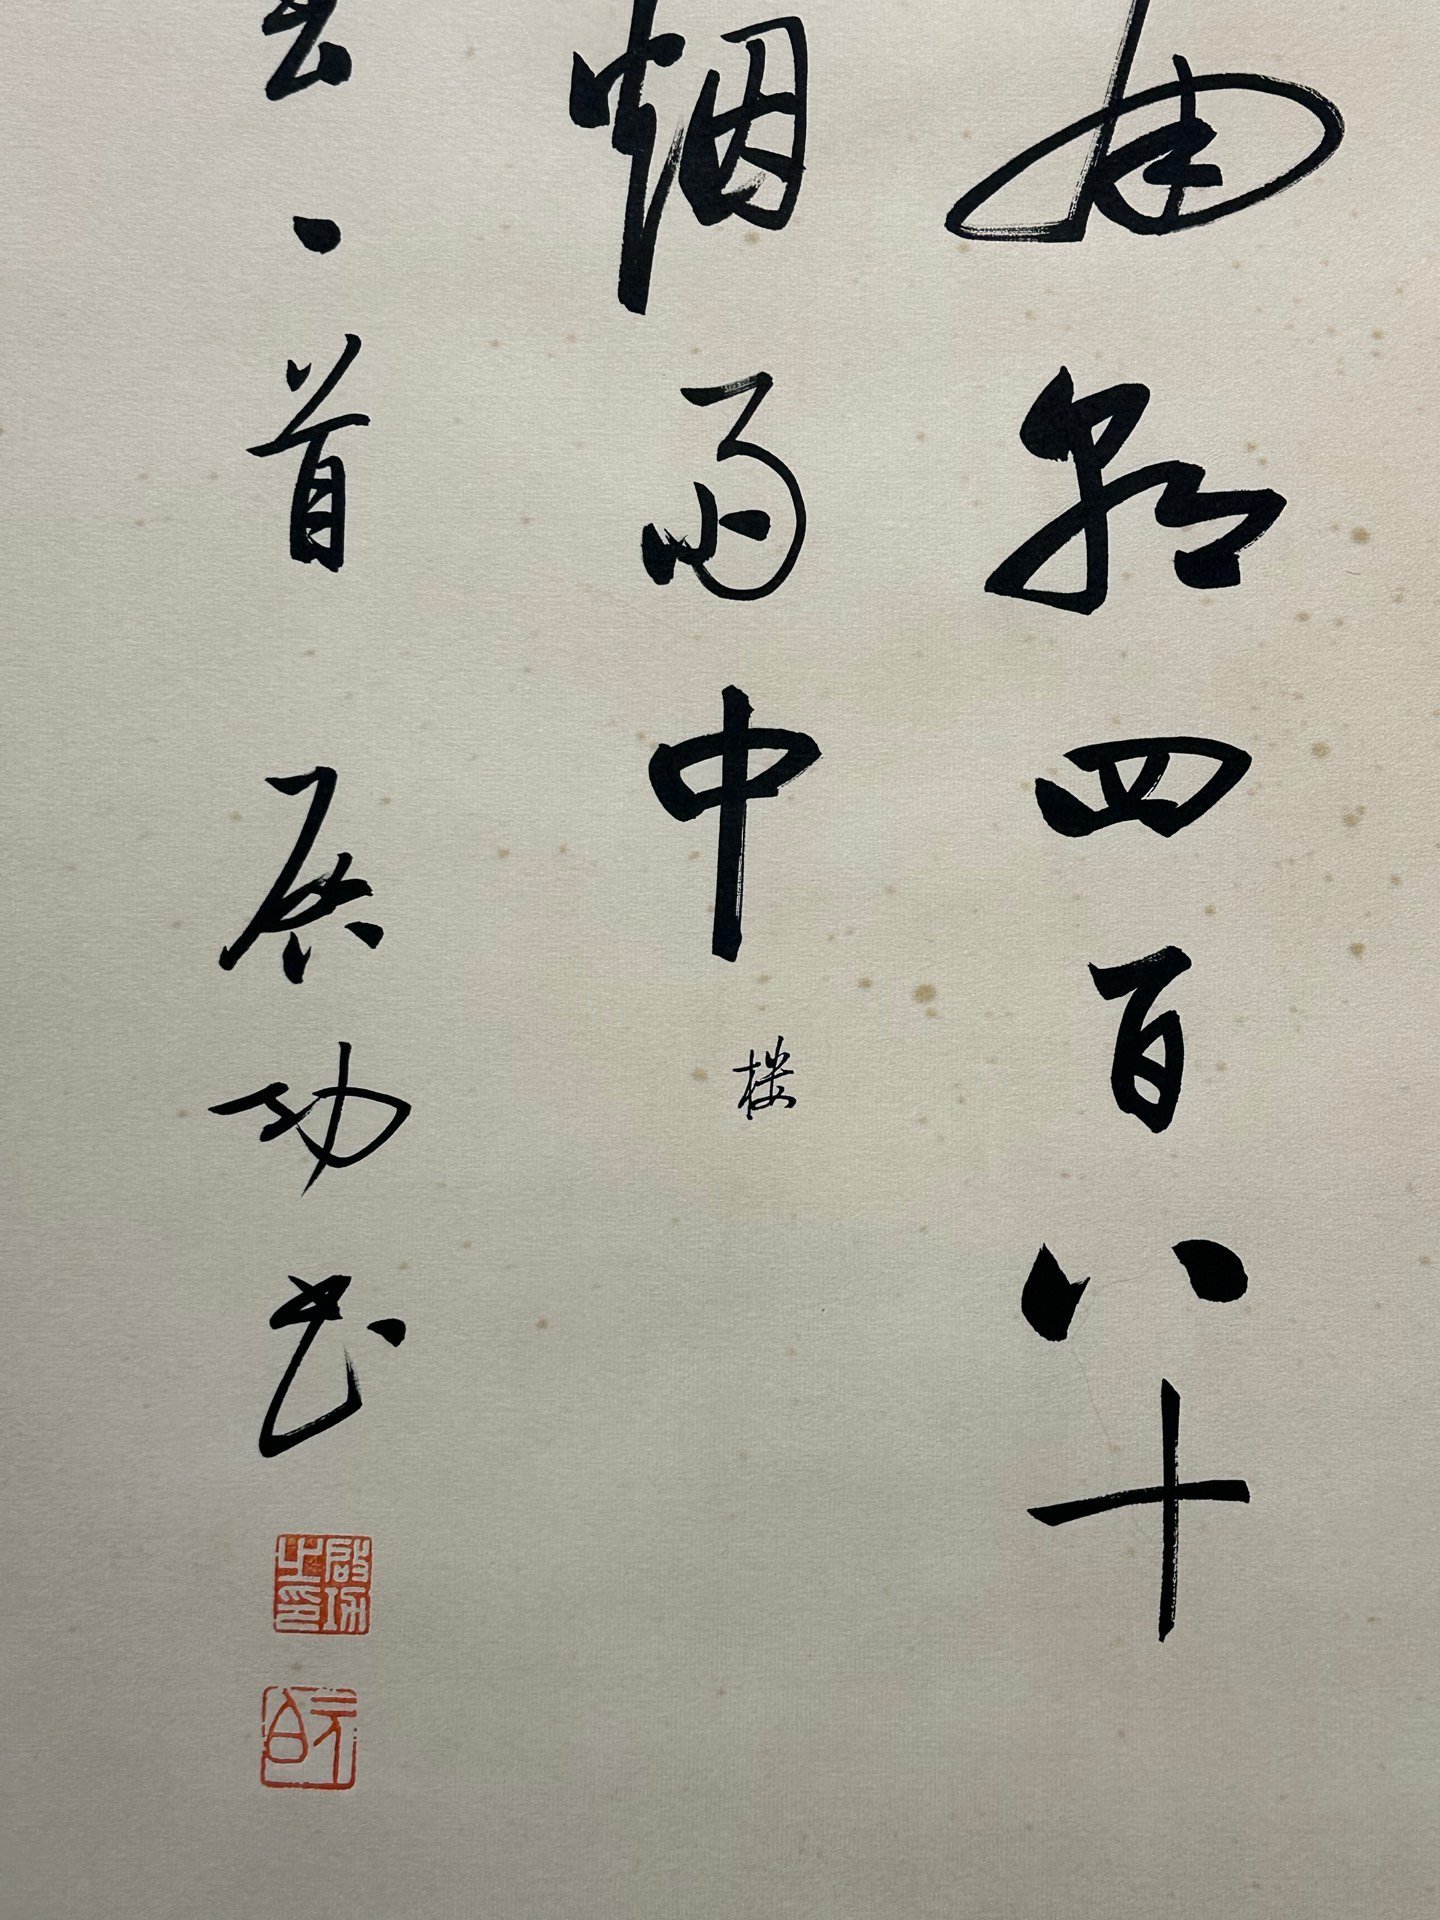 南朝四百八十
烟雨中
楼
一首
启功书
启功之印
元白